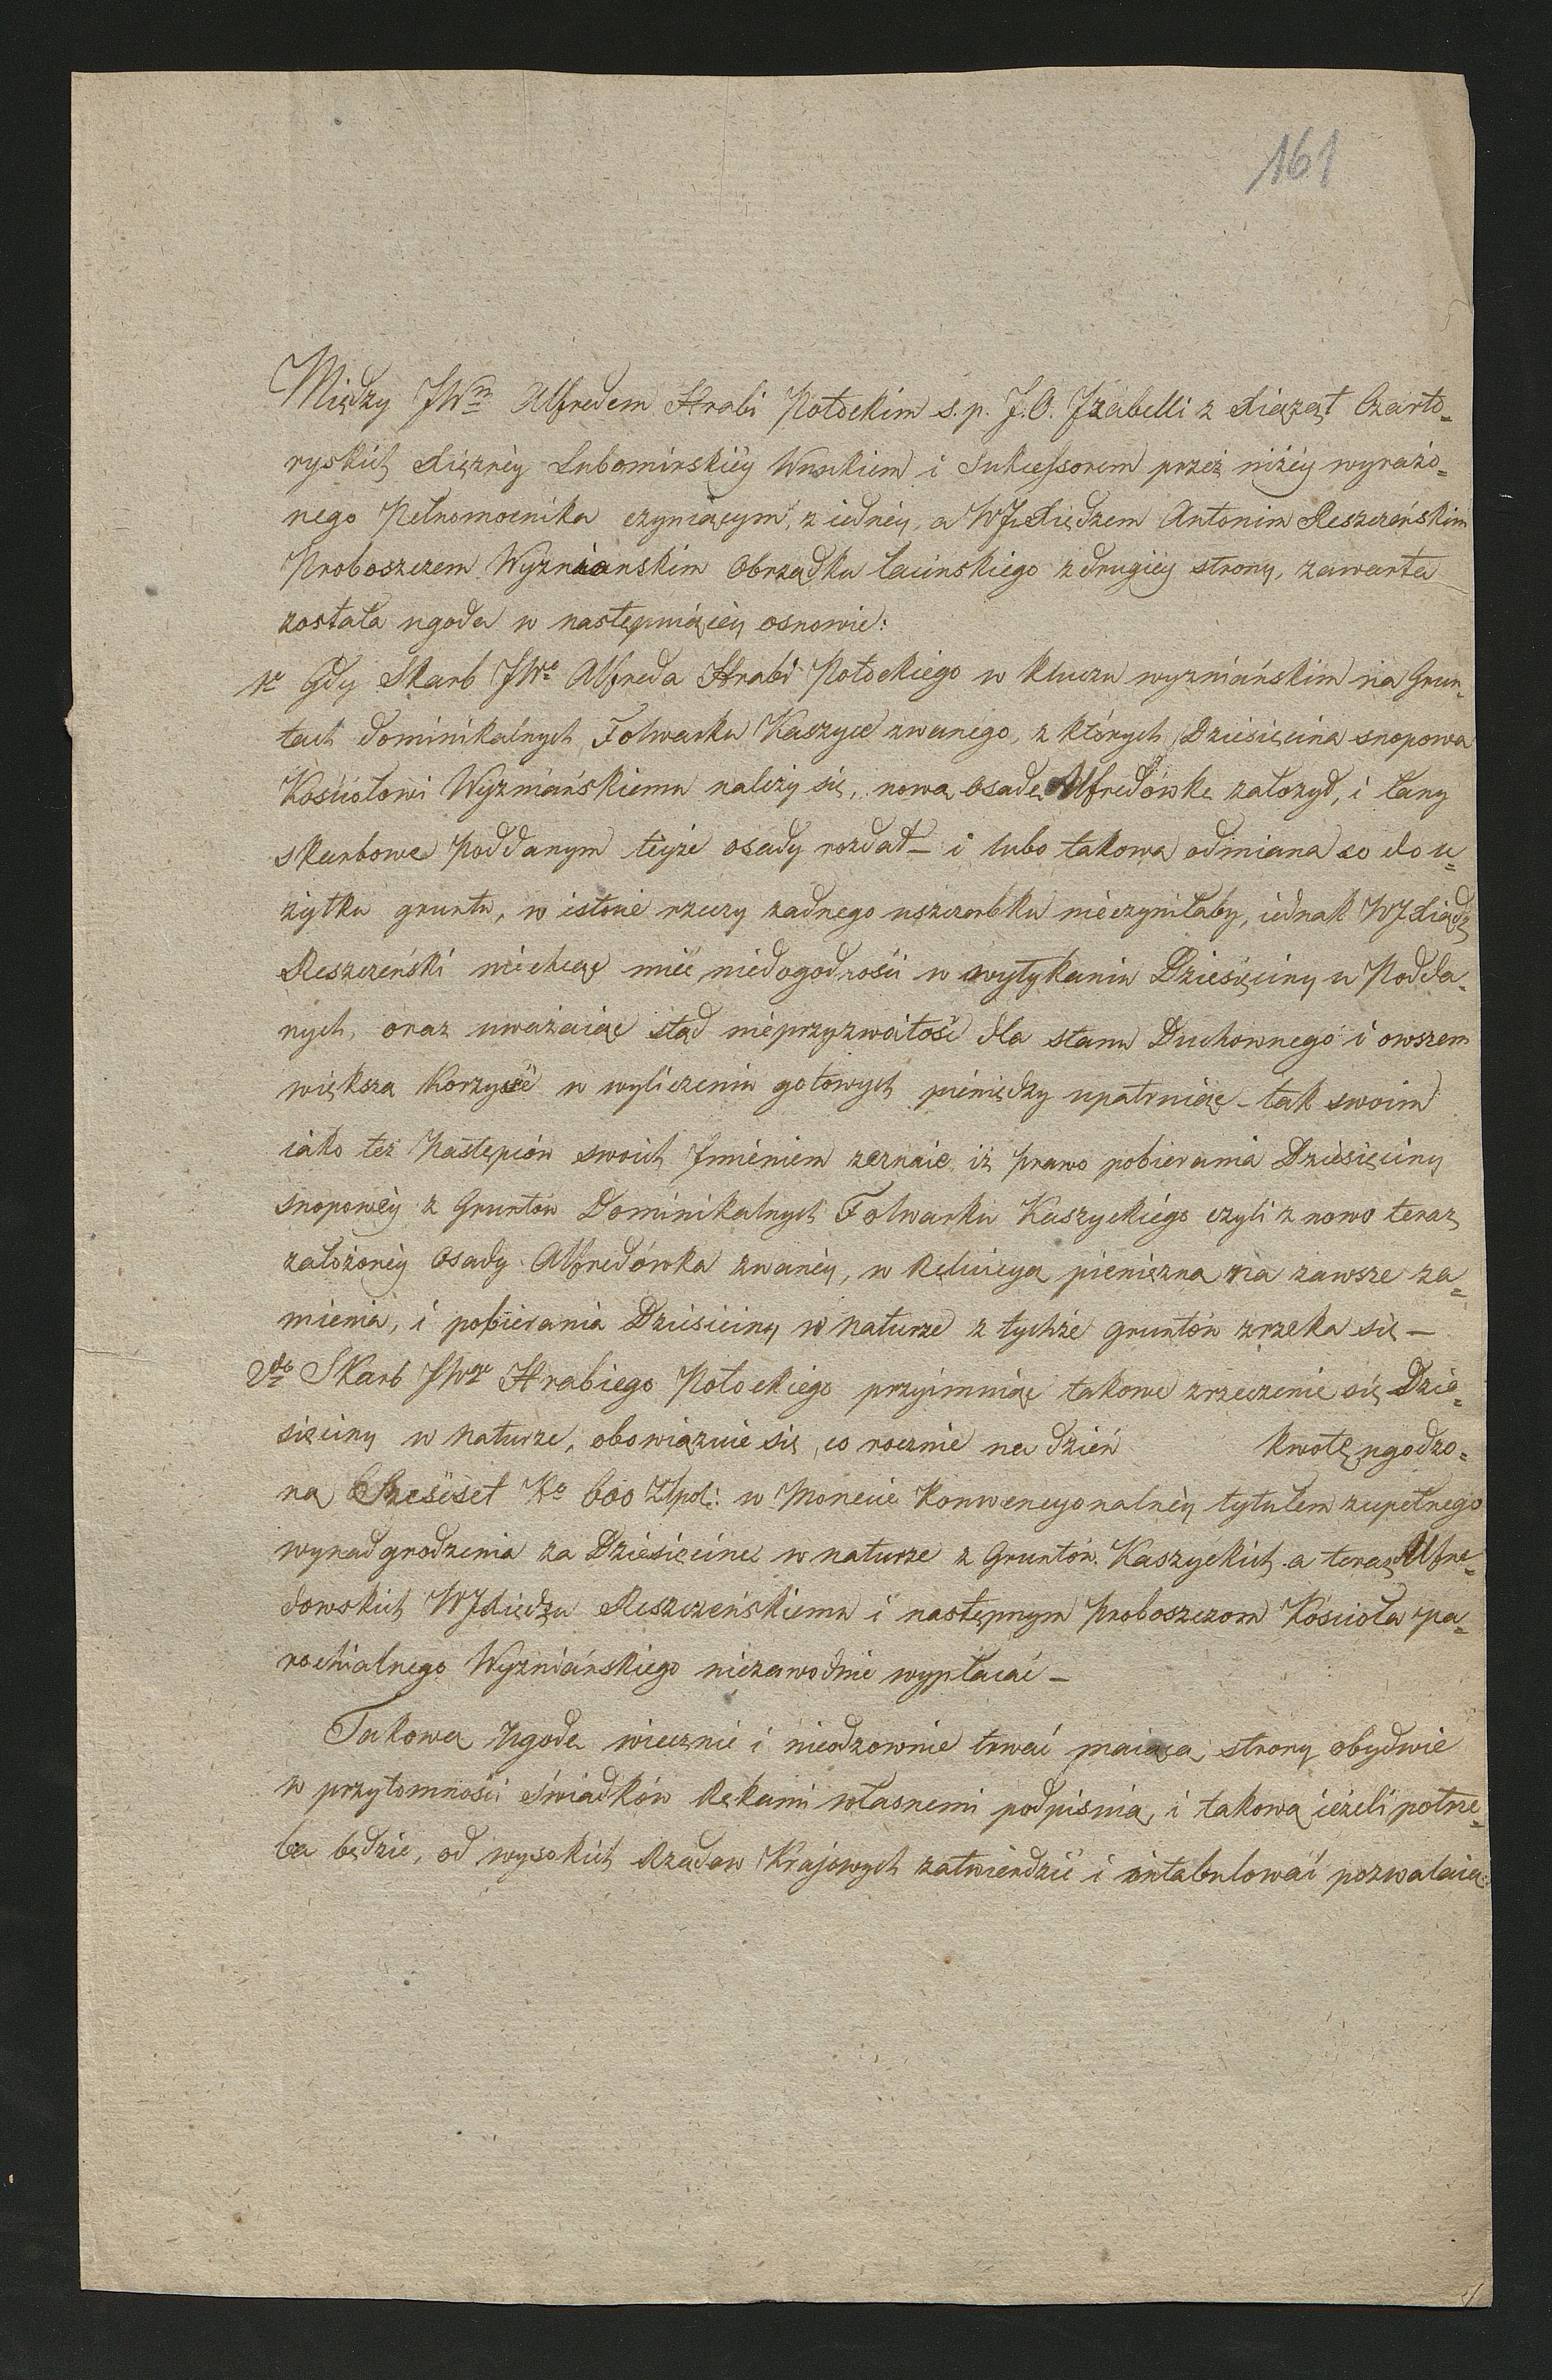 161
Między JWm Alfredem Hrabi Potockim s.p. J.O. Jzabelli z Xiążąt Czarto=
ryskich Xiężnéy Lubomirskiéy Wnukiem i Sukcessorem przez niżéy wyrażo=
nego Pełnomocnika czyniącym, z iednéy, a WJXiędzem Antonim Reszczeńskim
Proboszczem Wyznianskim Obrządku łacinskiego z drugiéy strony, zawarta
została ugoda w następuiącéy osnowie:
1o Gdy Skarb JWo Alfreda Hrabi Potockiego w kluczu wyzniańskim na Grun=
tach dominikalnych Folwarku Kaszyce zwanego, z których Dziesięcina snopowa
Kościołowi Wyzniańskiemu należy się, nową osadę Alfredówkę założył, i łany
skarbowe poddanym teyże osady rozdał – i lubo takowa odmiana co do u=
żytku gruntu, w istocie rzeczy żadnego uszczerbku nieczyniłaby, iednak WJXiądz
Reszczeński niechcąc mieć niedogodności w wytykaniu Dziesięciny u Podda=
nych, oraz uważaiąc stąd nieprzyzwoitość dla stanu Duchownego i owszem
większą korzyść w wyliczeniu gotowych pieniędzy upatruiąc – tak swoim
iako też Następców swoich Jmieniem zeznaie, iż prawo pobierania Dziesięciny
snopowéy z Gruntów Dominikalnych Folwarku Kaszyckiégo czyli z nowo teraz
założonéy Osady Alfredówka zwanéy, w Reluicyą pieniężną na zawsze za=
mienia, i pobierania Dziesięciny w naturze z tychże gruntów zrzeka się –
2do Skarb JWgo Hrabiego Potockiego przyimuiąc takowe zrzeczenie się Dzie=
sięciny w naturze, obowiązuie się, co rocznie na dzień kwotę ugodzo=
ną Sześćset No 600 Złpol: w Monecie Konwencyonalnéy tytułem zupełnego
wynadgrodzenia za Dziesięcinę w naturze z Gruntów Kaszyckich a teraz Alfre=
dowskich WJXiędzu Reszczeńskiemu i następnym Proboszczom Kościoła pa=
rochialnego Wyzniańskiego niezawodnie wypłacać –
Takową Ugodę wiecznie i nieodzownie trwać maiącą, strony obydwie
w przytomności świadków Rękami własnemi podpisuią, i takową ieżeli potrze=
ba będzie, od wysokich Rządow Krajowych zatwierdzić i intabulować pozwalaią.